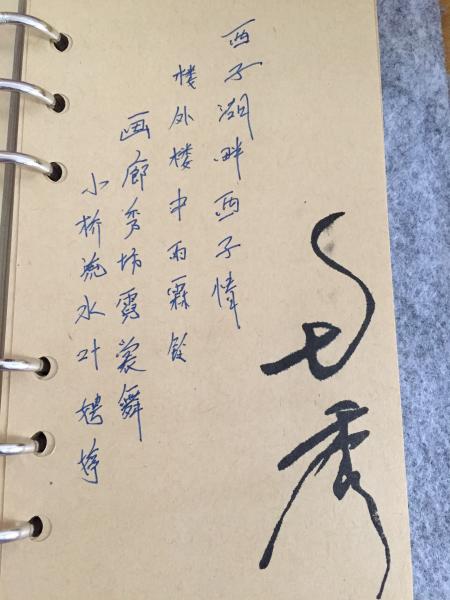 西子湖畔西子情
楼外楼中雨霖
画廊秀坊霓裳舞
小桥流水叶娉婷
秀